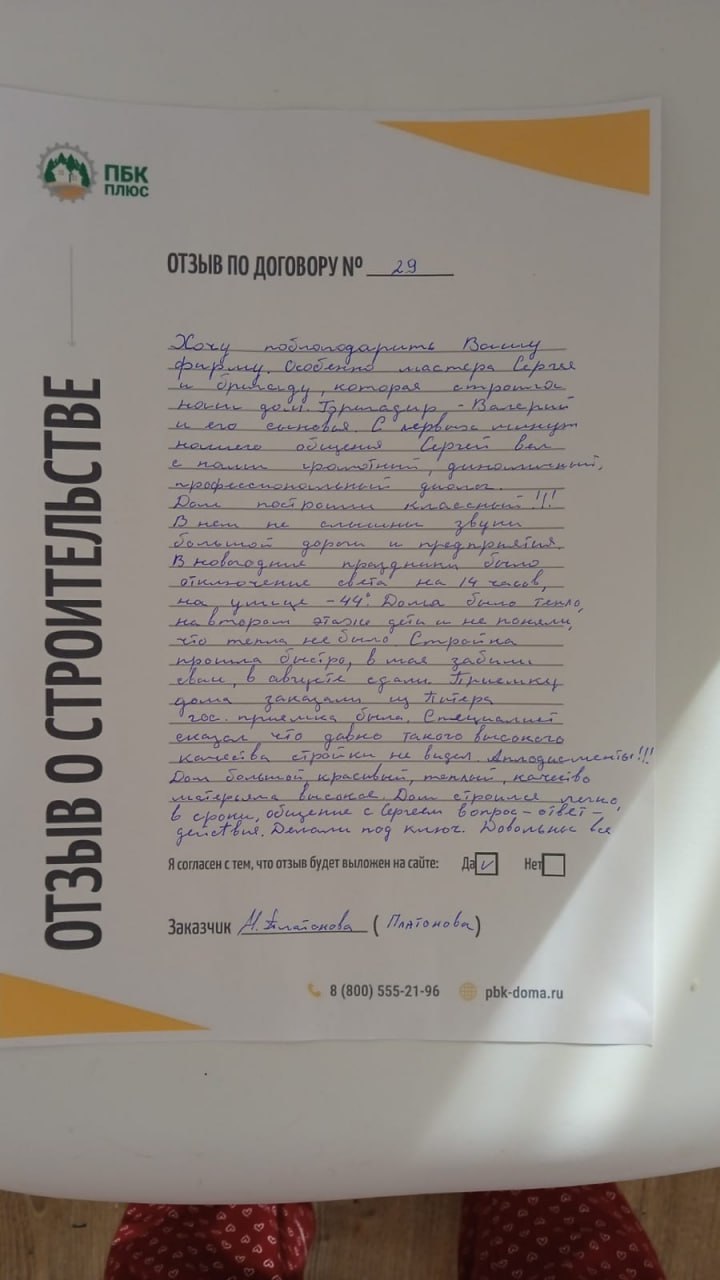 ПБК
ПЛЮС
ОТЗЫВ О СТРОИТЕЛЬСТВЕ
ОТЗЫВ ПО ДОГОВОРУ № 29
Хочу поблогодарить Вашу
фирму. Особенно мастера Сергея
и бригаду, которая строила
наш дом. Бригадир - Валерий
и его сыновья. С первых минут
нашего общения Сергей вел
с нами грамотный, диномичный,
профессиональный диалог.
Дом построили классный!!!
В нем не слышны звуки
большой дороги и предприятия.
В новогодние праздники было
отключение света на 14 часов,
на улице -44°. Дома было тепло,
на втором этаже дети и не поняли,
что тепла не было. Стройка
прошла быстро, в мая забили
сваи, в августе сдали. Приемку
дома заказали из Питера
гос. приемка была. Специалист
сказал, что давно такого высокого
качества стройки не видел. Аплодисменты!!!
Дом большой, красивый, теплый, качество
матерьяла высокое. Дом строился легко,
в сроки, общение с Сергеем вопрос-ответ-
действия. Делали под ключ. Довольны все
Я согласен с тем, что отзыв будет выложен на сайте: Да ✓ Нет
Заказчик Н. Платонова (Платонова)
8 (800) 555-21-96 pbk-doma.ru